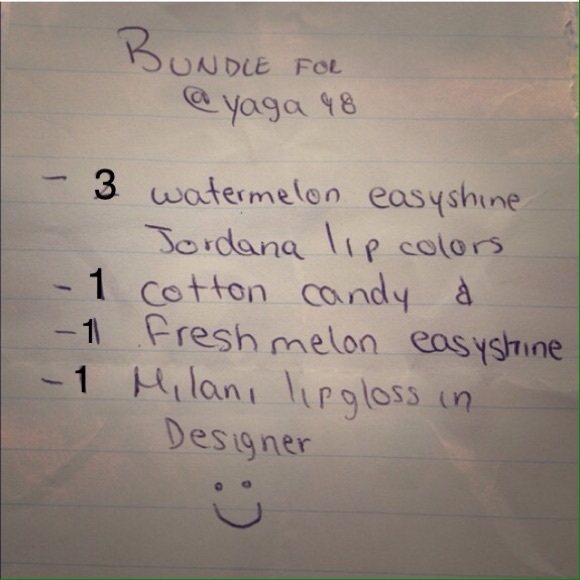 BUNDLE FOR
@yaga 98
- 3 watermelon easyshine
Jordana lip colors
- 1 cotton candy &
- 1 freshmelon easyshine
- 1 Milani lipgloss in
Designer